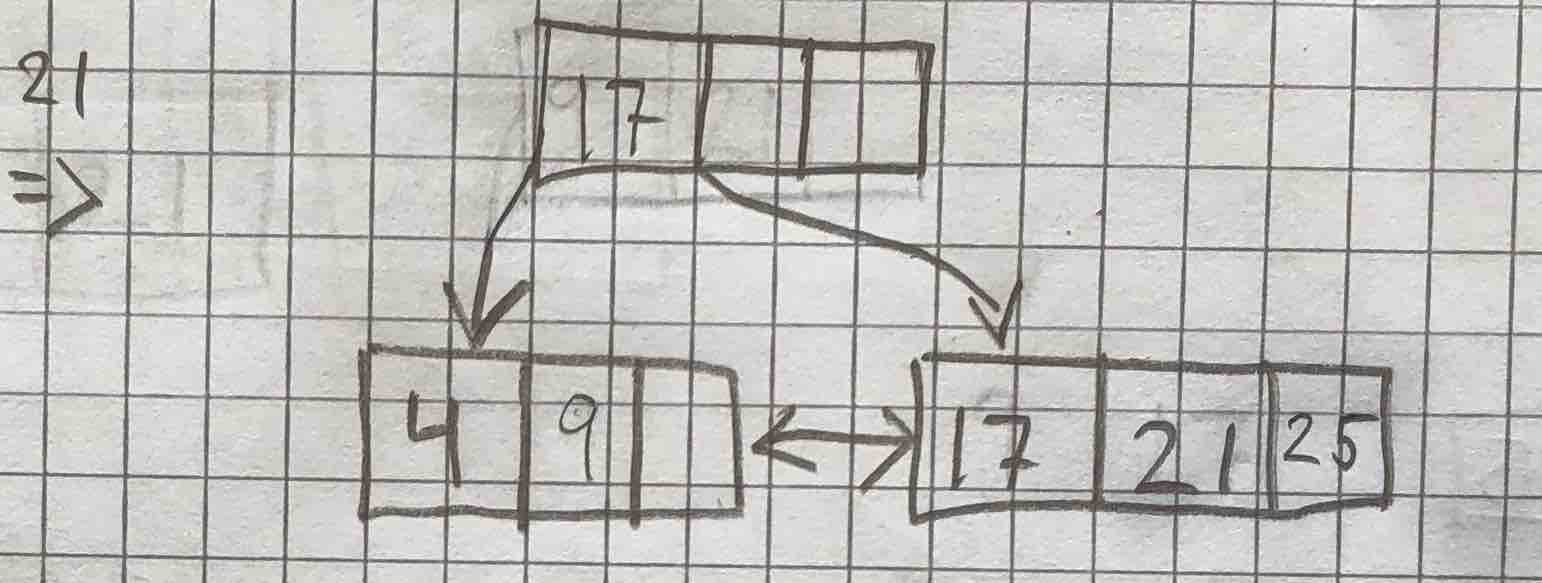 21
17
=>
4 9 17 21 25